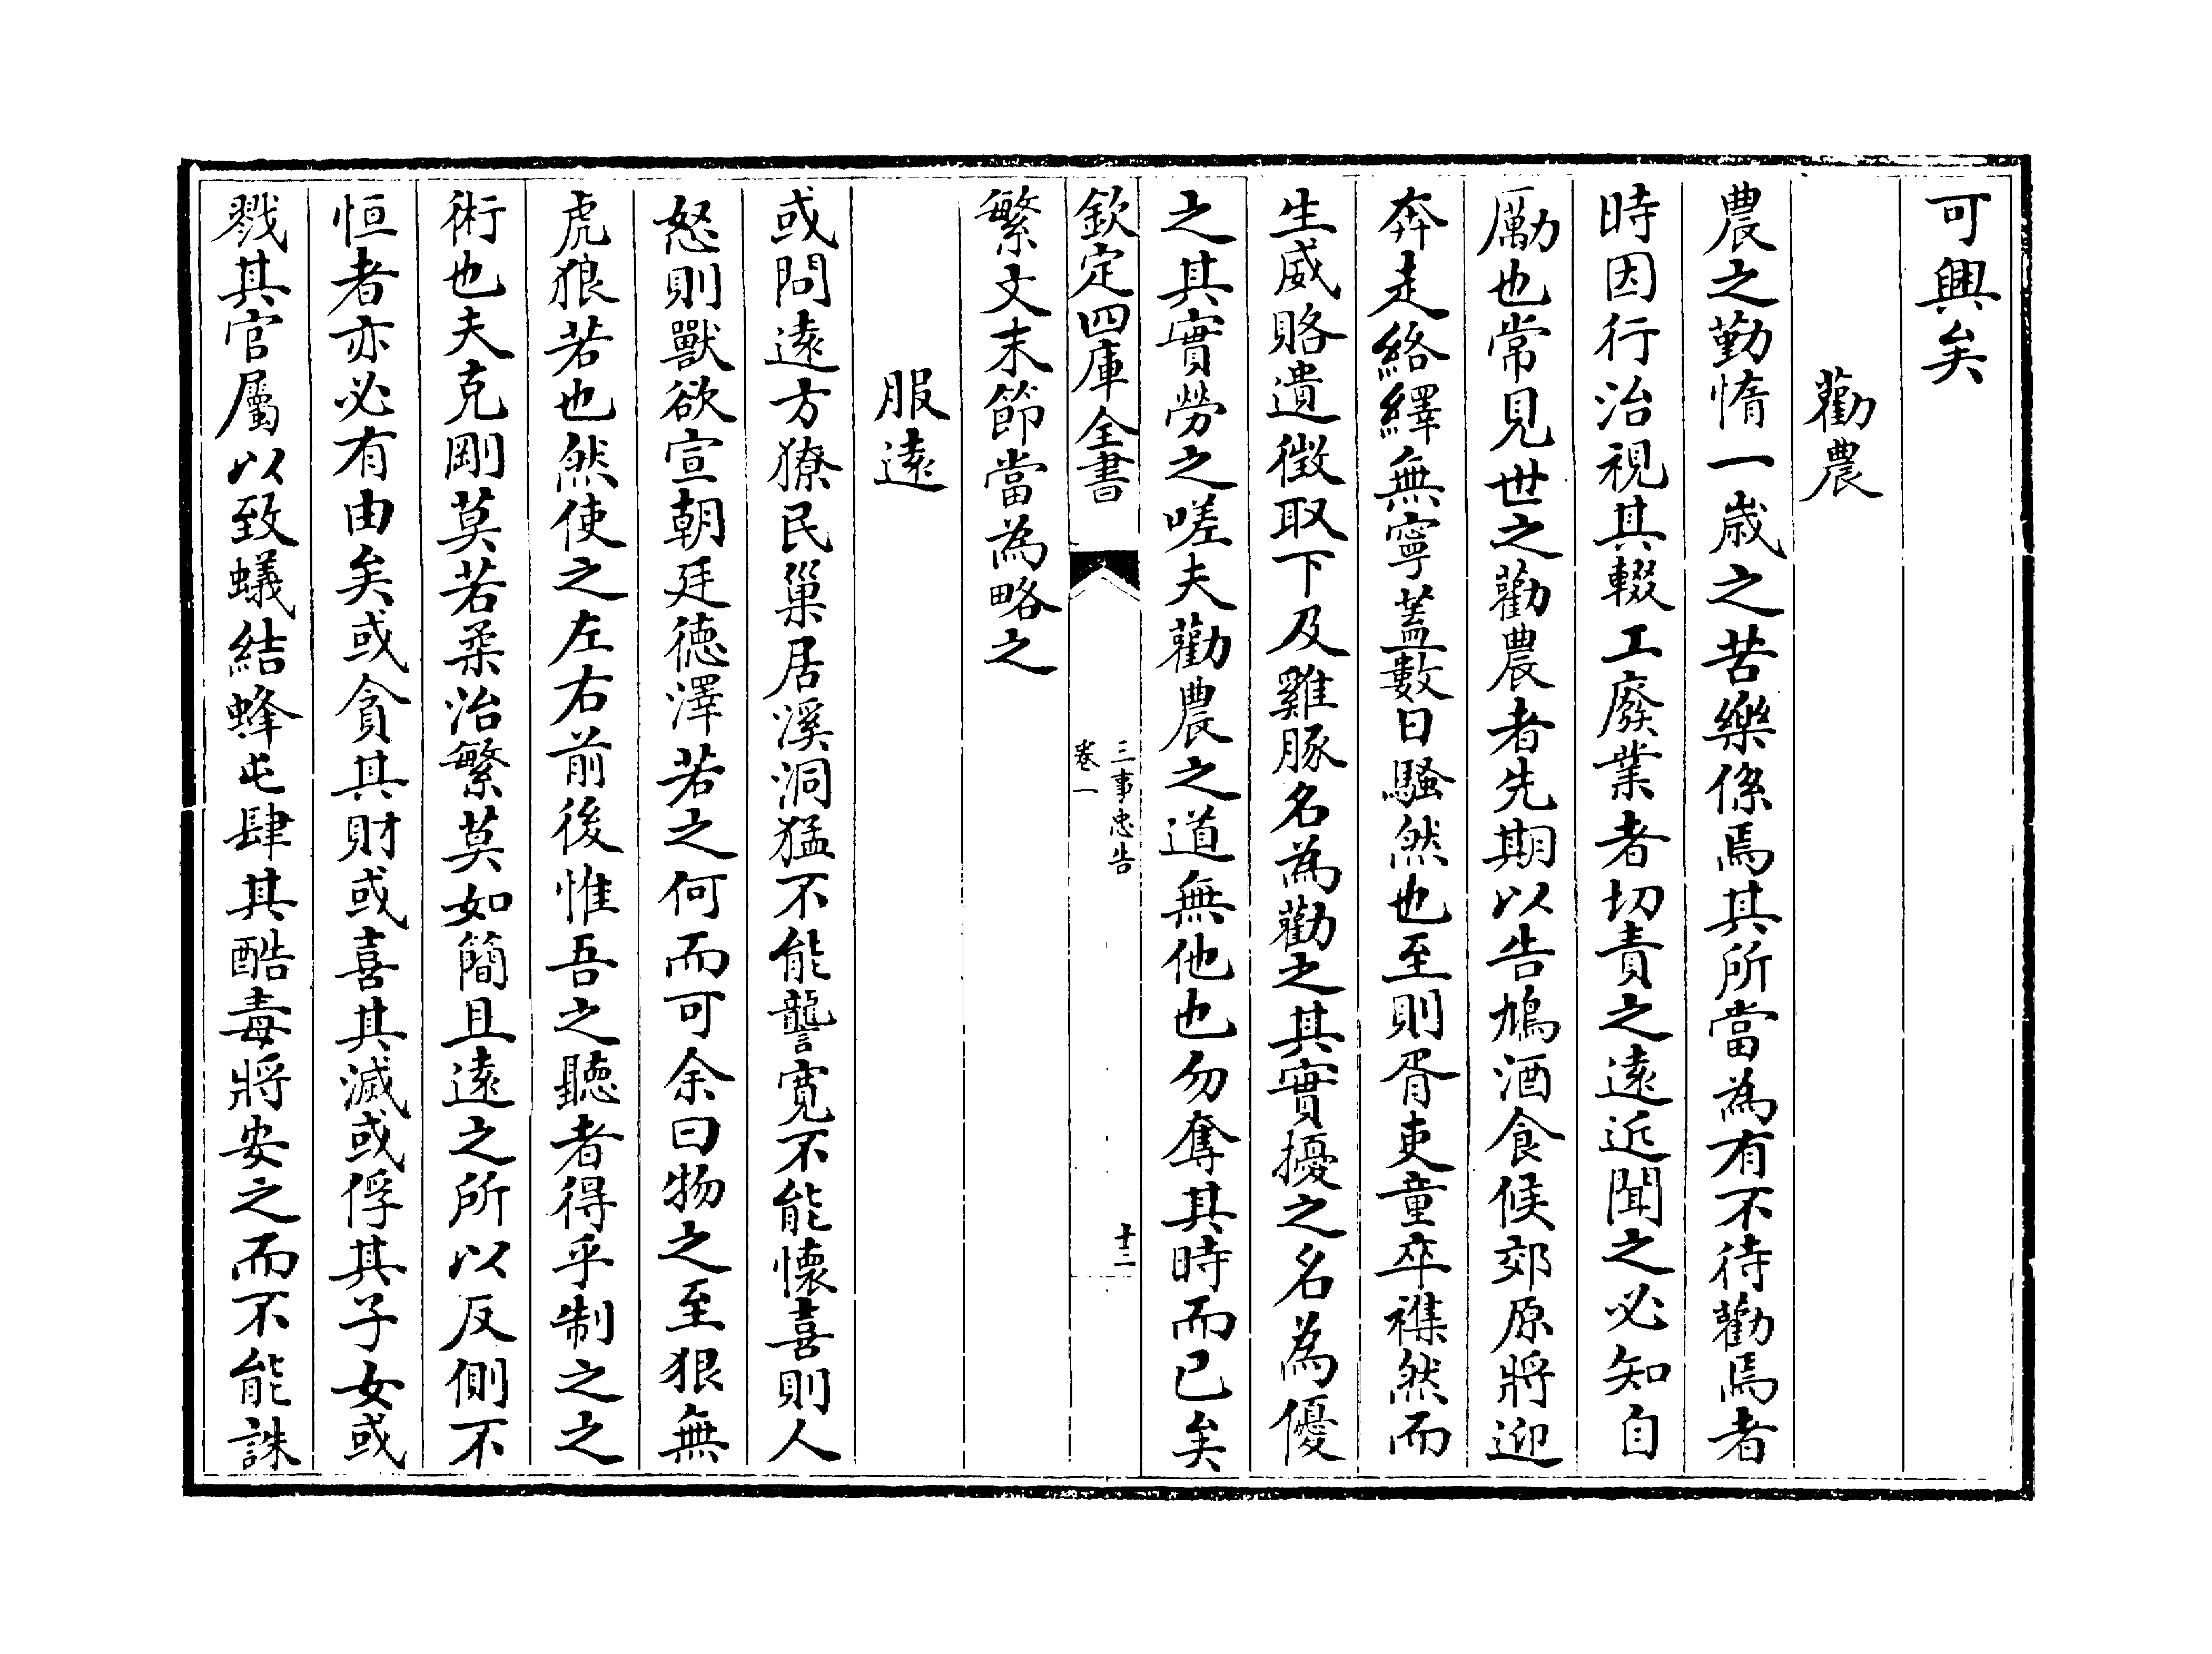 可興矣
勸農
農之勤惰一歲之苦樂係焉其所當為有不待勸焉者
時因行治視其輟工廢業者切責之遠近聞之必知自
勵也常見世之勸農者先期以告鳩酒食候郊原將迎
奔走絡繹無寧蓋數日騷然也至則胥吏童卒襍然而
生威賂遺徴取下及雞豚名為勸之其實擾之名為優
之其實勞之嗟夫勸農之道無他也勿奪其時而已矣
欽定四庫全書
三事忠告
卷一
十二
繁文末節當為略之
服逺
或問逺方獠民巢居溪洞猛不能讋寛不能懷喜則人
怒則獸欲宣朝廷德澤若之何而可余曰物之至狠無
虎狼若也然使之左右前後惟吾之聽者得乎制之之
術也夫克剛莫若柔治繁莫如簡且逺之所以反側不
恒者亦必有由矣或貪其財或喜其滅或俘其子女或
戮其官屬以致蟻結蜂屯肆其酷毒將安之而不能誅